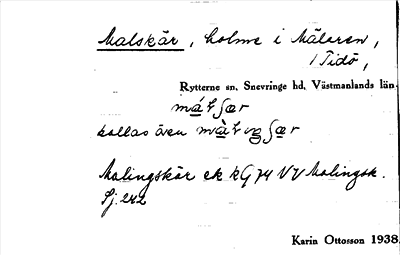 Malskär, holme i Mälaren,
/ Tidö,
Rytterne sn, Snevringe hd, Västmanlands län
kallas även
Malingskär ek kG 74 VV Malingsk.
Sj. 242
Karin Ottosson 1938.